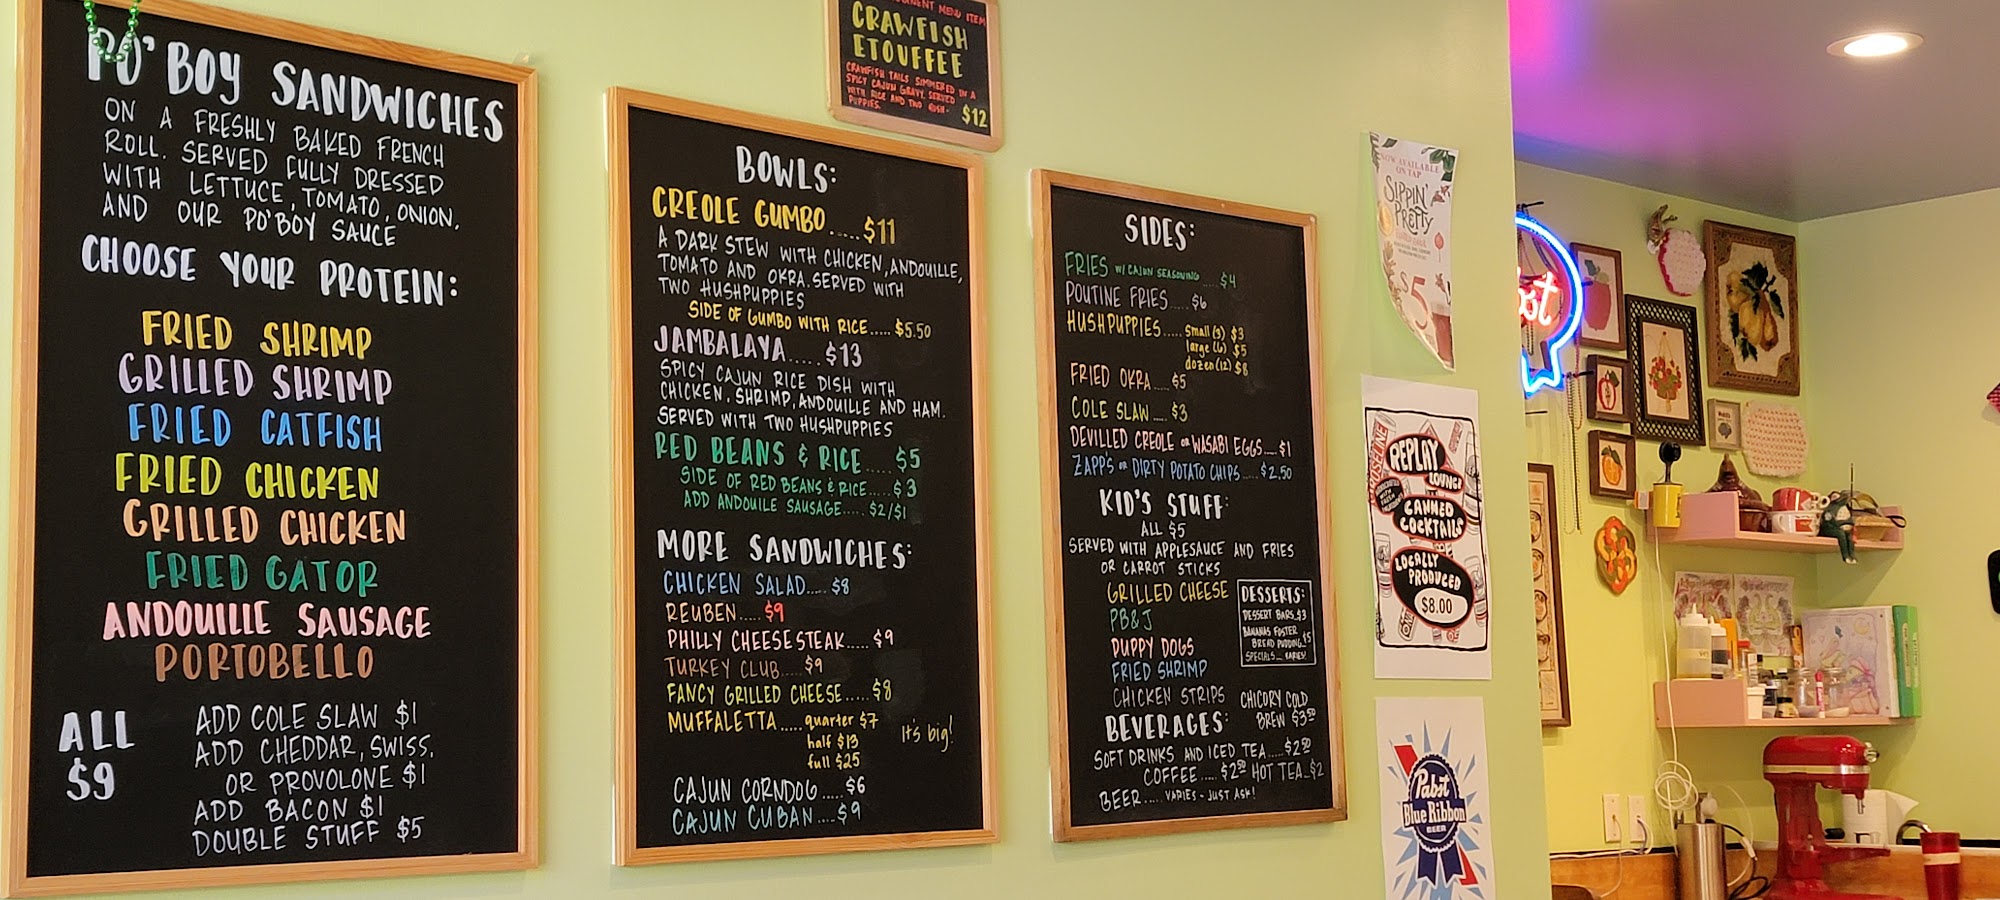 PO' BOY SANDWICHES
ON A FRESHLY BAKED FRENCH
ROLL. SERVED FULLY DRESSED
WITH LETTUCE, TOMATO, ONION,
AND OUR PO'BOY SAUCE
CHOOSE YOUR PROTEIN:
FRIED SHRIMP
GRILLED SHRIMP
FRIED CATFISH
FRIED CHICKEN
GRILLED CHICKEN
FRIED GATOR
ANDOUILLE SAUSAGE
PORTOBELLO
ALL
$9
ADD COLE SLAW $1
ADD CHEDDAR, SWISS,
OR PROVOLONE $1
ADD BACON $1
DOUBLE STUFF $5
MENU ITEM
CRAWFISH
ETOUFFEE
CRAWFISH TAILS SIMMERED IN A
SPICY CAJUN GRAVY. SERVED
WITH RICE AND TWO HUSH-
PUPPIES.
$12
BOWLS:
CREOLE GUMBO.....$11
A DARK STEW WITH CHICKEN, ANDOUILLE,
TOMATO AND OKRA. SERVED WITH
TWO HUSHPUPPIES
SIDE OF GUMBO WITH RICE.....$5.50
JAMBALAYA.....$13
SPICY CAJUN RICE DISH WITH
CHICKEN, SHRIMP, ANDOUILLE AND HAM.
SERVED WITH TWO HUSHPUPPIES
RED BEANS & RICE.....$5
SIDE OF RED BEANS & RICE.....$3
ADD ANDOUILE SAUSAGE.....$2/$1
MORE SANDWICHES:
CHICKEN SALAD....$8
REUBEN.....$9
PHILLY CHEESESTEAK.....$9
TURKEY CLUB....$9
FANCY GRILLED CHEESE.....$8
MUFFALETTA.....quarter $7
half $13
full $25
It's big!
CAJUN CORNDOG.....$6
CAJUN CUBAN....$9
SIDES:
FRIES W/ CAJUN SEASONING.....$4
POUTINE FRIES....$6
HUSHPUPPIES.....small (3) $3
large (6) $5
dozen (12) $8
FRIED OKRA....$5
COLE SLAW....$3
DEVILLED CREOLE OR WASABI EGGS....$1
ZAPP'S OR DIRTY POTATO CHIPS....$2.50
KID'S STUFF:
ALL $5
SERVED WITH APPLESAUCE AND FRIES
OR CARROT STICKS
GRILLED CHEESE
PB&J
PUPPY DOGS
FRIED SHRIMP
CHICKEN STRIPS
DESSERTS:
DESSERT BARS..$3
BANANAS FOSTER
BREAD PUDDING..$5
SPECIALS...VARIES!
CHICORY COLD
BREW $3.50
BEVERAGES:
SOFT DRINKS AND ICED TEA....$2.50
COFFEE....$2.50 HOT TEA...$2
BEER.... VARIES - JUST ASK!
NOW AVAILABLE
ON TAP
SIPPIN'
PRETTY
$5
REPLAY
LOUNGE
CANNED
COCKTAILS
LOCALLY
PRODUCED
$8.00
Pabst
Blue Ribbon
BEER